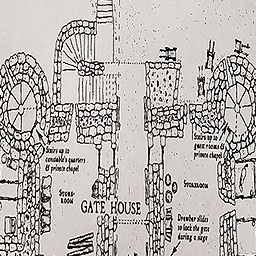 Stairs up to
constable's quarters
& private chapel
Stairs up to
guest rooms &
private chapel
STORE-
ROOM
STOREROOM
GATE HOUSE
Drawbar slides
to lock the gate
during a siege